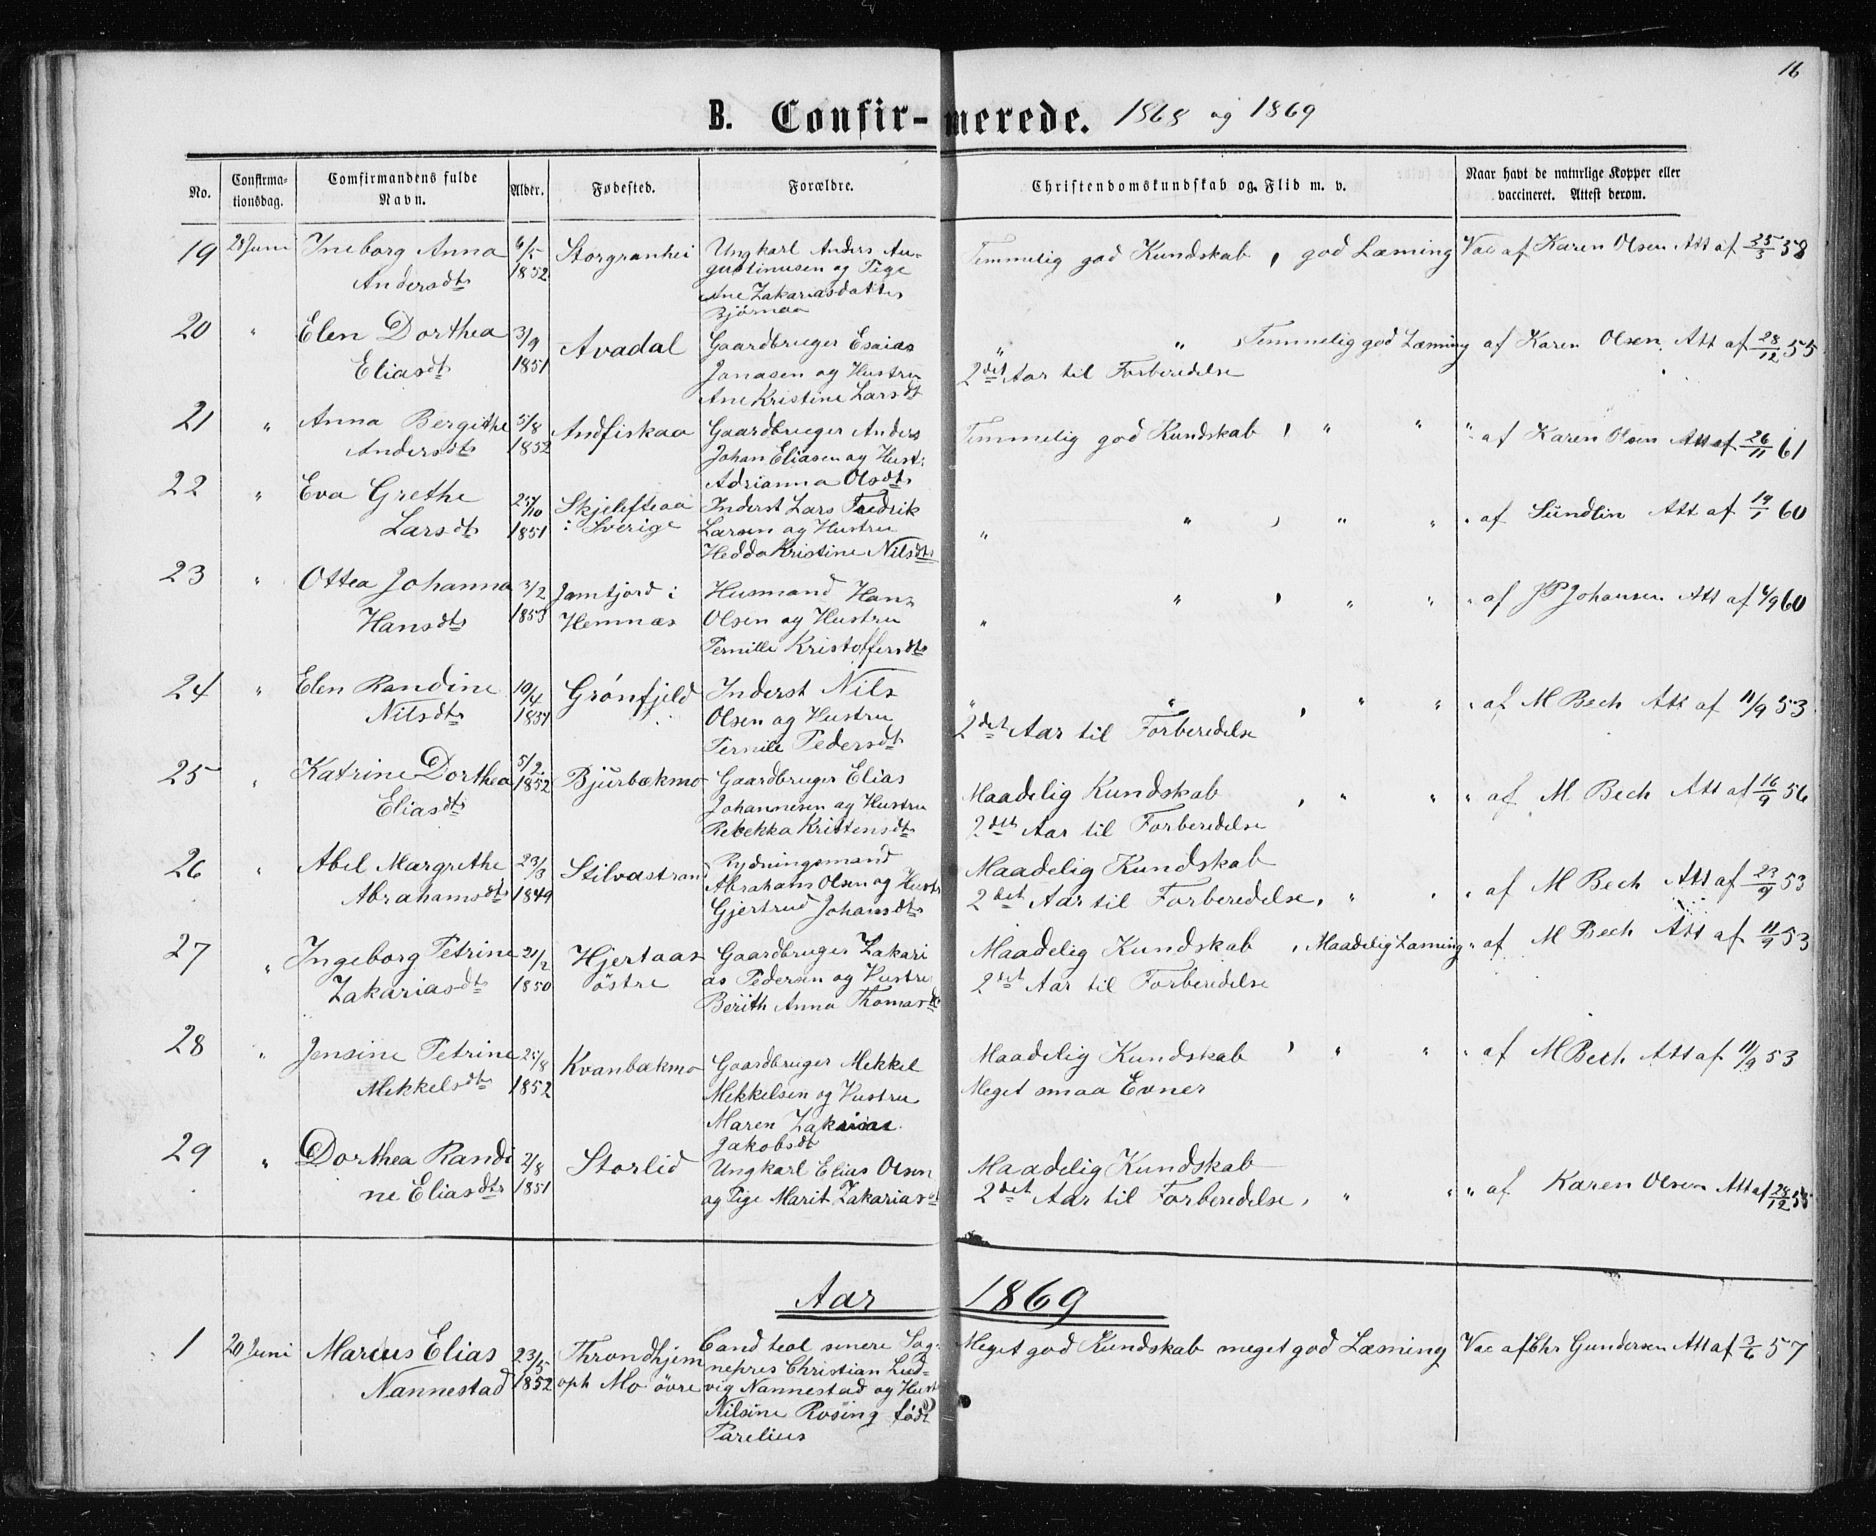 16
B. Confir-merede. 1868 og 1869
No.
Confirma-
tionsdag.
Comfirmandens fulde
Navn.
Alder.
Fødested.
Forældre.
Christendomskundskab og Flid m. v.
Naar havt de naturlige Kopper eller
vaccineret. Attest derom.
19 28 Juni Ineborg Anna 6/5 Storgranhei Ungkarl Anders Au- Temmelig god Kundskab, god Læsning Vac af Karen Olsen Att af 25/3 58
Andersdtr 1852 gustinusen og Pige
Ane Zakariasdatter
Bjørnaa
20 " Elen Dorthea 3/9 Avadal Gaardbruger Esaias " " , Temmelig god Læsning af Karen Olsen Att af 28/12 55
Eliasdtr 1851 Jonasen og Hustru 2det Aar til Forberedelse
Ane Kristine Larsdtr
21 " Anna Bergithe 5/8 Andfiskaa Gaardbruger Anders Temmelig god Kundskab, " " " af Karen Olsen Att af 26/11 61
Andersdtr 1852 Johan Eliasen og Hust:
Adrianna Olsdtr
22 " Eva Grethe 25/10 Skjelefteaa Inderst Lars Fredrik " " , " " " af Sündlin Att af 19/1 60
Larsdtr 1851 i Sverige Larsen og Hustru
Hedda Kristine Nilsdtr
23 " Ottea Johanna 3/2 Jamtjord i Husmand Hans " " , " " " af JP Johansen Att af 4/9 60
Hansdtr 1853 Hemnæs Olsen og Hustru
Pernille Kristoffersdtr
24 " Elen Randine 10/4 Grónfjeld Inderst Nils " " , " " " af M Bech Att af 11/9 53
Nilsdtr 1851 Olsen og Hustru 2det Aar til Forberedelse
Pernille Pedersdtr
25 " Katrine Dorthea 5/2 Bjurbækmo Gaardbruger Elias Maadelig Kundskab , " " " af M Bech Att af 16/9 56
Eliasdtr 1852 Johannesen og Hustru 2det Aar til Forberedelse
Rebekka Kristensdtr
26 " Abel Margrethe 23/3 Stilvastran Rydningsmand Maadelig Kundskab
Abrahamsdtr 1849 Abraham Olsen og Hustr 2det Aar til Forberedelse, " " " af M Bech Att af 23/9 53
Gjertrud Johansdtr
27 " Ingeborg Petrine 21/2 Hjertaas Gaardbruger Zakari Maadelig Kundskab , Maadelig Læsning " af M Bech Att af 11/9 53
Zakariasdtr 1850 östre as Pedersen og Hustru 2det Aar til Forberedelse
Berith Anna Thomasdtr
28 " Jensine Petrine 25/8 Kvanbækmo Gaardbruger Mekkel Maadelig Kundskab , " " " af M Bech Att af 11/9 53
Mekkelsdtr 1852 Mekkelsen og Hustru Meget smaa Evner
Maren
Jakobsdt
29 " Dorthea Randi 2/8 Storlid Ungkarl Elias Olsen Maadelig Kundskab
ne Eliasdtr 1851 og Pige Marit Zakariasdt 2det Aar til Forberedelse, " " " af Karen Olsen Att af 28/12 55
Aar 1869
1 20 Juni Marius Elias 23/5 Throndhjem Cand teol senere Sog- Meget god Kundskab meget god Læsning Vac af Chr Gundersen Att af 3/6 57
Nannestad 1852 oph Mo óvre nepres Christian Lud-
vig Nannestad og Hust
Nilsine Rosing født
Parelius